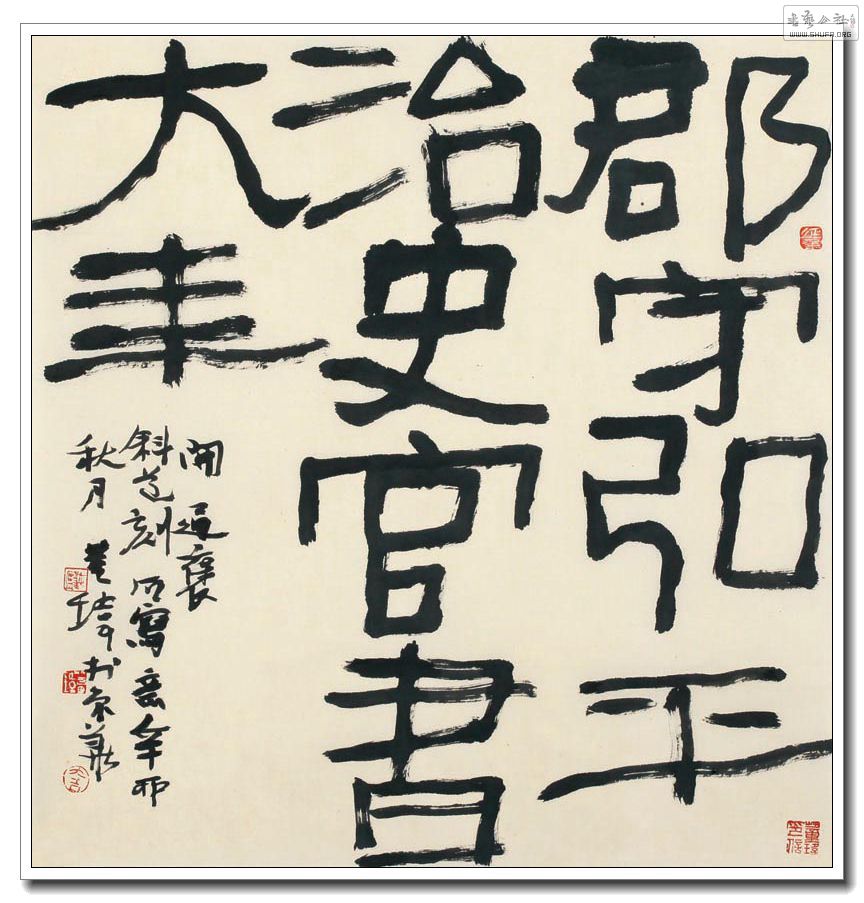 书艺公社
WWW.SHUFA.ORG
郡守弘平
治史官書
大年
開通褒
斜道刻石寫意辛卯
秋月董琦於京華